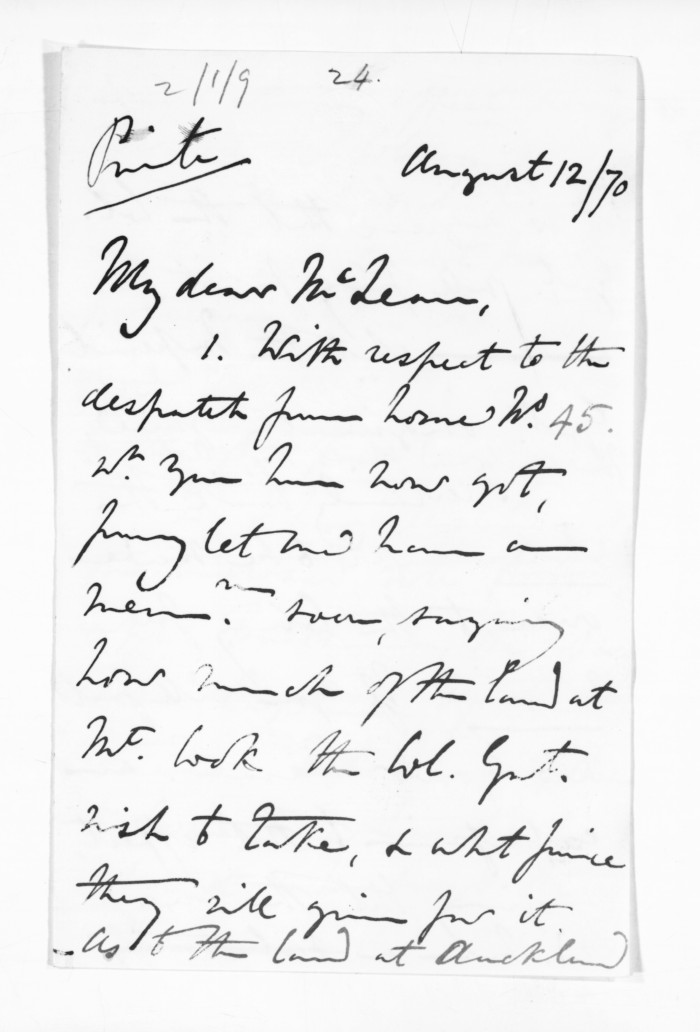 2/1/9 24.
Private
August 12/70
My dear McLean,
1. With respect to the
despatch from home No. 45.
wh. you have now got,
pray let me have a
memm. soon, saying
how much of the land at
Mt. Cook the Col. Govt.
wish to take, & what price
they will give for it
- As to the land at Auckland